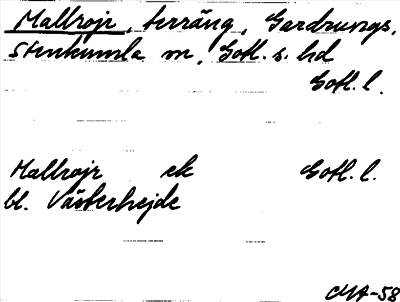 Mallrojr, terräng, Gardrungs,
Stenkumla sn, Gotl. s. hd
Gotl. l.
Mallrojr ek Gotl. l.
bl. Västerhejde
CMA-58